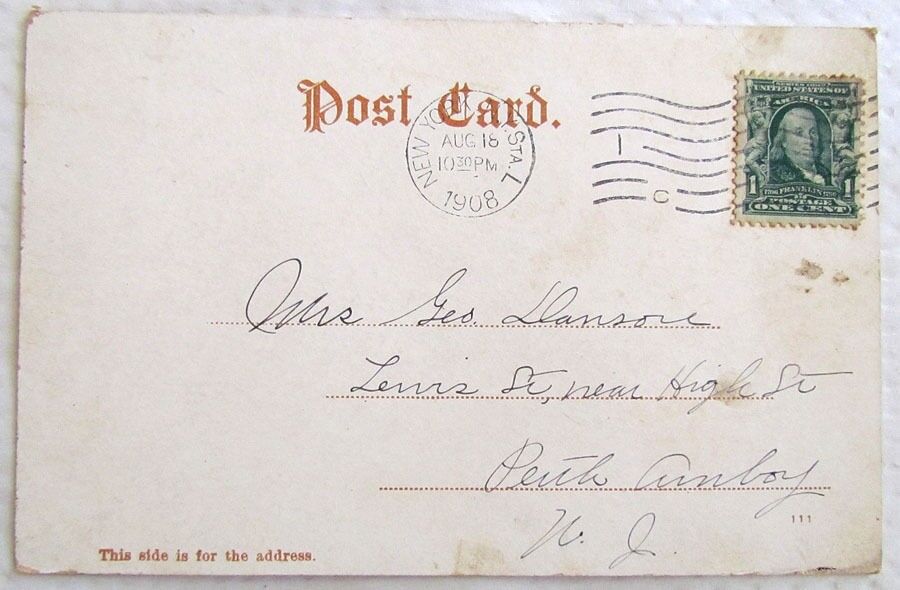 Post Card.
NEW YORK, N.Y. STA. L
AUG 18
10 30 PM
1908
1
C
SERIES 1902
UNITED STATES OF
AMERICA
1 FRANKLIN 1
POSTAGE
ONE CENT
Mrs Geo. Dansore
Lewis St, near High St
Perth Amboy
N. J.
111
This side is for the address.